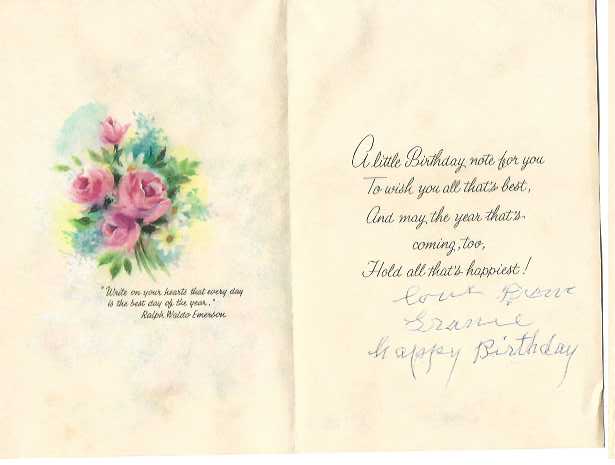 "Write on your hearts that every day
is the best day of the year."
Ralph Waldo Emerson
A little Birthday note for you
To wish you all that's best,
And may the year that's
coming, too,
Hold all that's happiest!
Love From
Granie
Happy Birthday